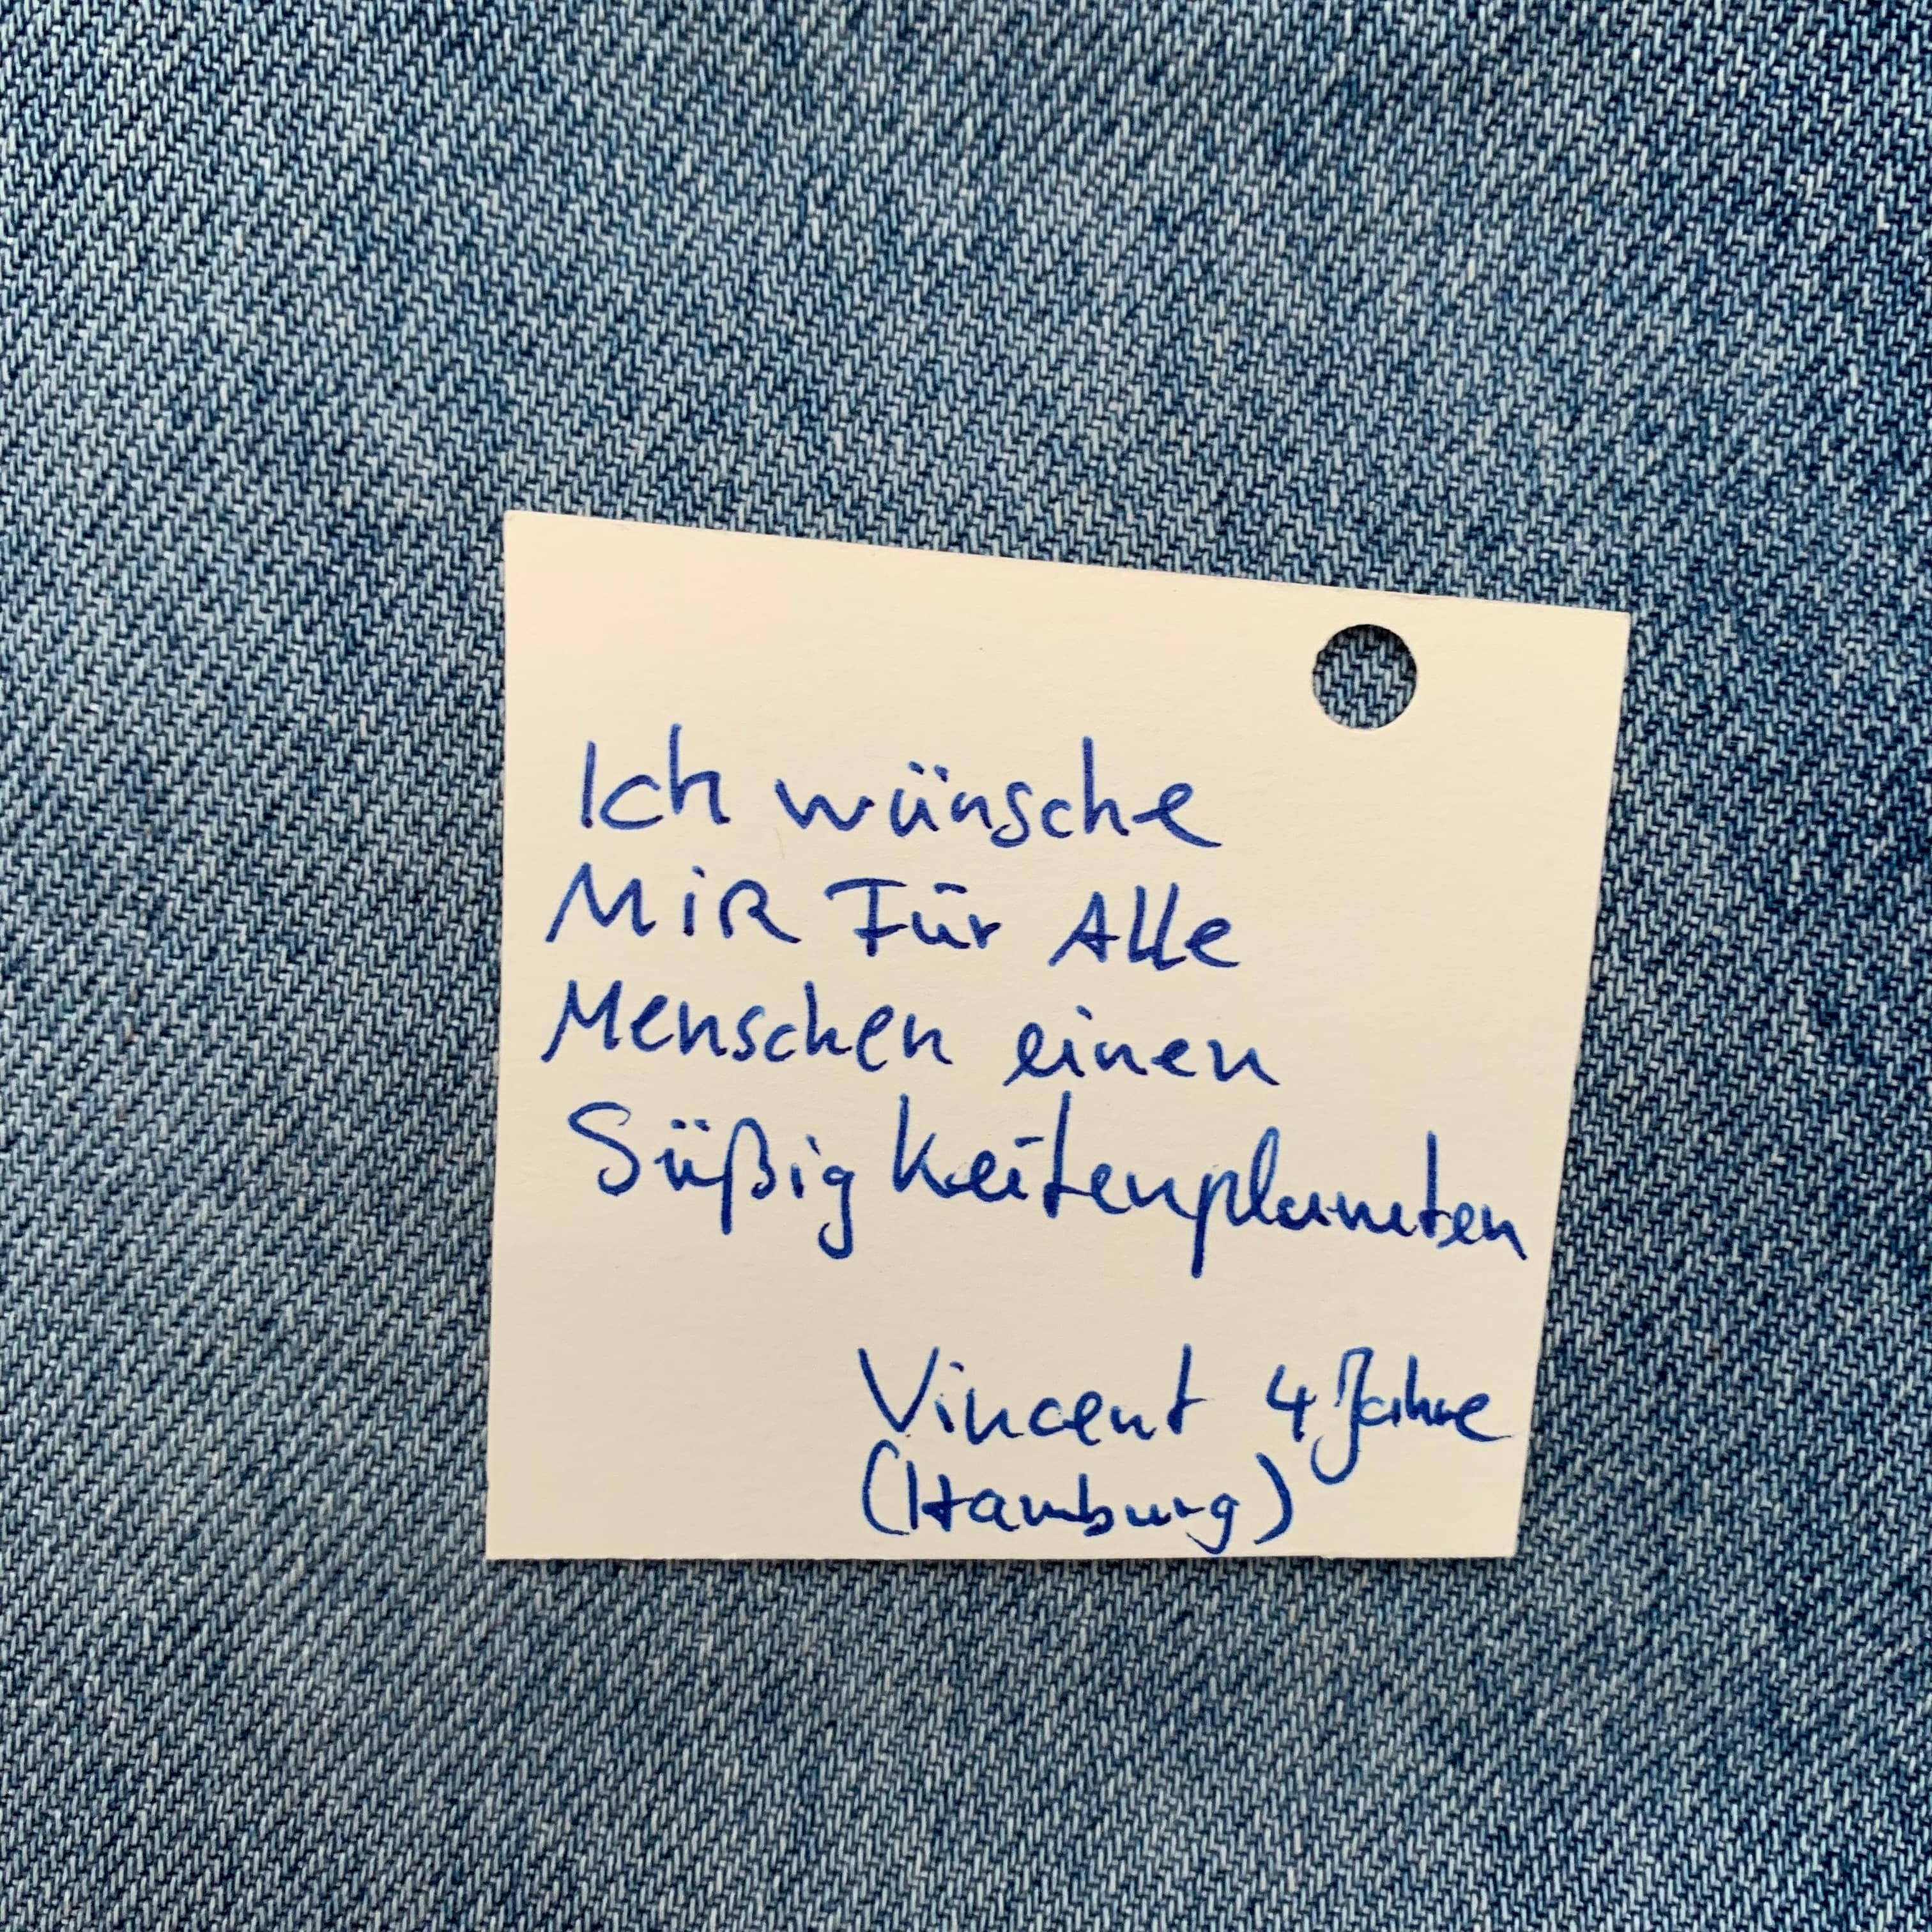 Ich wünsche
MiR Für Alle
Menschen einen
Süßigkeitenplaneten
Vincent 4 Jahre
(Hamburg)